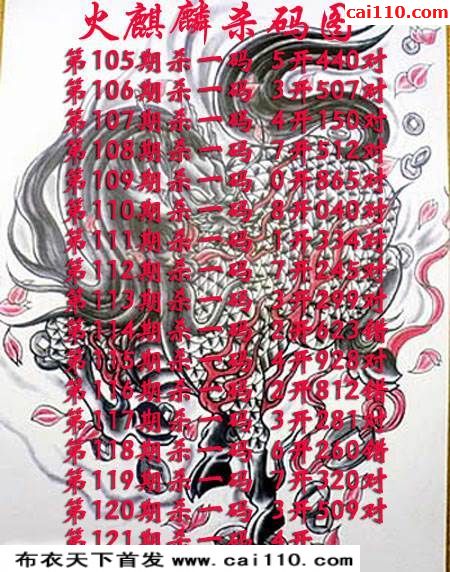 cai110.com
火麒麟杀码图
第105期杀一码 5开440对
第106期杀一码 3开507对
第107期杀一码 4开150对
第108期杀一码 7开512对
第109期杀一码 0开865对
第110期杀一码 8开040对
第111期杀一码 1开334对
第112期杀一码 7开245对
第113期杀一码 3开299对
第114期杀一码 2开623错
第115期杀一码 4开928对
第116期杀一码 2开812错
第117期杀一码 3开281对
第118期杀一码 6开260错
第119期杀一码 7开320对
第120期杀一码 3开509对
第121期杀一码 4开
布衣天下首发 www.cai110.com